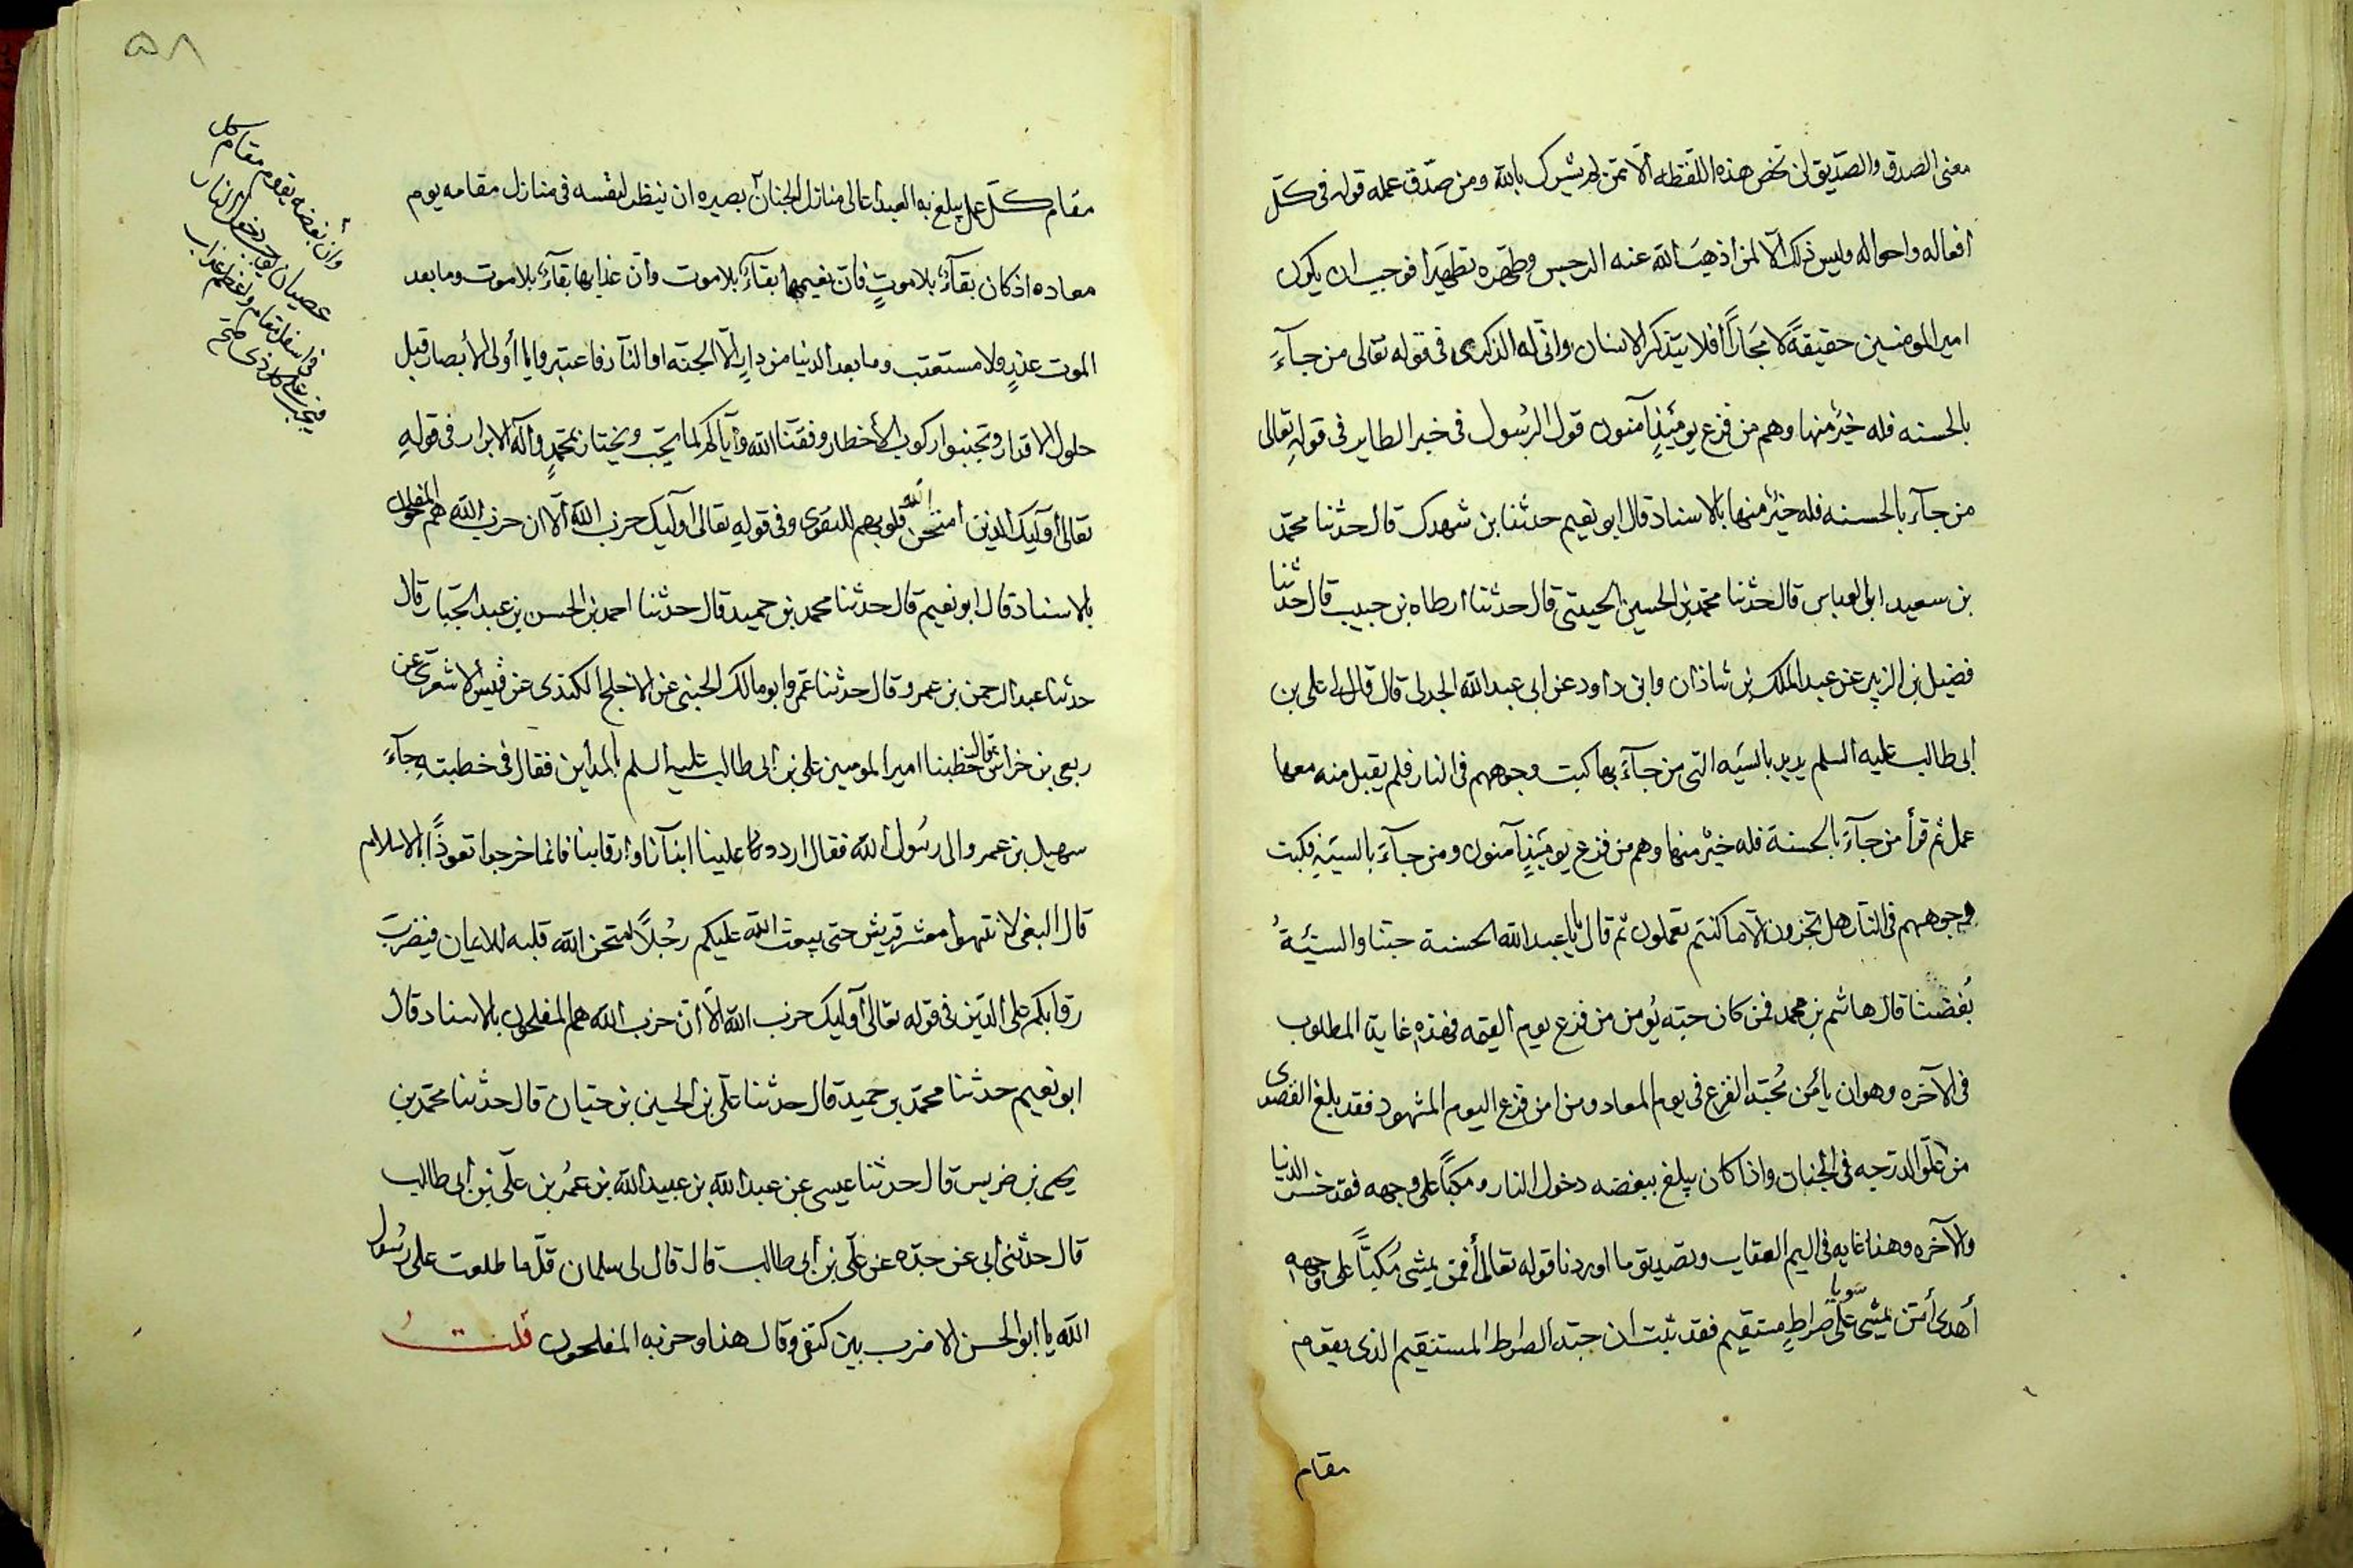 معنى الصدق والصّديق لن تخص هذه اللّفظه الّا بمن لم يشرك بالله ومن صدّق عمله قوله فى كلّ
افعاله واحواله وليس ذلك الّا لمن اذهبَ الله عنه الرجس وطهّره تطهيرا فوجب ان يكون
امير المومنين حقيقةً لا مجازاً أفلا يتذكر الانسان وانّى له الذكرى فى قوله تعالى من جآءَ
بالحسنه فله خيرٌ منها وهم من فزع يومئذٍ آمنون قول الرسُول فى خبر الطاير فى قولهِ تعالى
من جآء بالحسنه فله خيرٌ منها بالاسناد قال ابو نعيم حدثنا بن شهدك قال حدثنا محمّد
بن سعيد ابى العباس قال حدثنا محمّد بن الحسين الحيدتى قال حدثنا ارطاه بن حبيب قال حدثنا
فضيل بن الزبير عن عبد الملك بن شاذان وابى داود عن ابى عبد الله الجدلى قال قال لى على بن
ابى طالب عليه السلم يريد بالسّيه التى من جآءَ بها كبت وجوههم فى النار فلم يقبل منه معها
عمل ثم قرأ من جآءَ بالحسنة فله خيرٌ منها وهم من فزع يومَئذٍ آمنون ومن جآءَ بالسيَئةِ فكبت
وجوههم فى النّار هل تجزون الّا ما كنتم تعملون ثم قال يا با عبد الله الحسنة حبّنا والسيّئةُ
بُغضنا قال هاشم بن محمد فمن كان حبّه يُومن من فزع يوم القيمه فهذه غاية المطلوب
فى الآخره وهو ان يأمن مُحبّه الفزع فى يوم المعاد ومن امن فزع اليوم المشهود فقد بلغ القصوى
من علّو الدرجه فى الجنان واذا كان يبلغ ببغضه دخول النار ومكبّاً على وجهه فقد خسر الدنيا
والآخره وهذا غايه فى اليم العقاب وتصديق ما اوردنا قوله تعالى أفمن يمشى مُكبّاً على وجهه
أهدى أمّن يمشى سَويا على صراطٍ مستقيم فقد ثبت ان حبّه الصراط المستقيم الذى يقوم
مقام
۵۸
مقام كلّ عمل يبلغ به العبد اعالى منازل الجنان بصيره ان ينظر لنفسه فى منازل مقامه يوم
معاده اذ كان بقآءً بلا موتٍ فانّ نعيمها بقآءً بلا موت وانّ عذابها بقآءً بلا موت وما بعد
الموت عذرٍ ولا مستعتب وما بعد الدنيا من دارٍ الّا الجنّه او النّار فاعتبروا يا أولى الأبصار قبل
حلول الاقدار وتجنبوا ركوب الأخطار وفقنا الله وايّاكم لما يحب ويختار بمحمّدٍ وآله الابرار فى قولهِ
تعالى أوآليك الذين امتحن الله قلوبهم للتقوى وفى قولهِ تعالى أوآليك حزب الله ألا ان حزب الله هم المفلحون
بالاسناد قال ابو نعيم قال حدثنا محمد بن حميد قال حدثنا احمد بن الحسن بن عبد الجبّار قال
حدثنا عبد الرحمن بن عمرو قال حدثنا عمرو ابو مالك الجنبى عن الاجلح الكندى عن قيس الاشعرى عن
ربعى بن خراش قال خطبنا امير المومنين على بن ابى طالب عليه السلم بالمداين فقال فى خطبته جآءَ
سهيل بن عمرو الى رسُول الله فقال اردد علينا ابنآنا وأرقابنا فانما خرجوا تعوذاً بالاسلام
قال النبى لا تنتهوا معشر قريش حتى يبعث الله عليكم رجُلاً امتحن الله قلبه للايمان فيضربَ
رقابكم على الدّين فى قوله تعالى أوآليك حزب الله ألا انّ حزب الله هم المفلحون بالاسناد قال
ابو نعيم حدثنا محمّد بن حميد قال حدثنا علّى بن الحسين بن حيّان قال حدثنا محمّد بن
يحى بن ضريس قال حدثنا عيسى عن عبد الله بن عبيد الله بن عمُر بن علّى بن ابى طالب
قال حدثنى ابى عن جدّه عن علّى بن أبى طالب قال قال لى سلمان قلّ ما طلعت على رسُول
الله يا ابو الحسن الا ضرب بين كتفى وقال هذا وحزبه المفلحون قلتُ
وأن بُغضه يقوم مقام كل
عصيان يوجب دخول النار
فى اسفل مقام واعظم عذاب